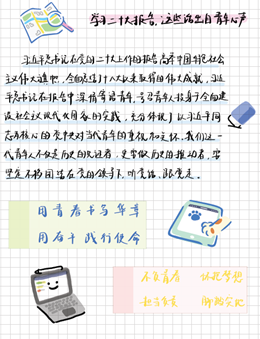 学习二十大报告,这些话出自青年心声
习近平总书记在党的二十大上作的报告高举中国特色社会
主义伟大旗帜,全面总结了十八大以来取得的伟大成就,习近
平总书记在报告中深情寄语青年,号召青年人投身于全面建
设社会主义现代化国家的实践,充分体现了以习近平同
志为核心的党中央对当代青年的重视和关怀,我们这一
代青年人不仅是历史的见证者,更当做历史的推动者,当
坚定不移团结在党的领导下,听党话、跟党走。
用青春书写华章
用奋斗践行使命
不负青春 怀抱梦想
担当有为 脚踏实地